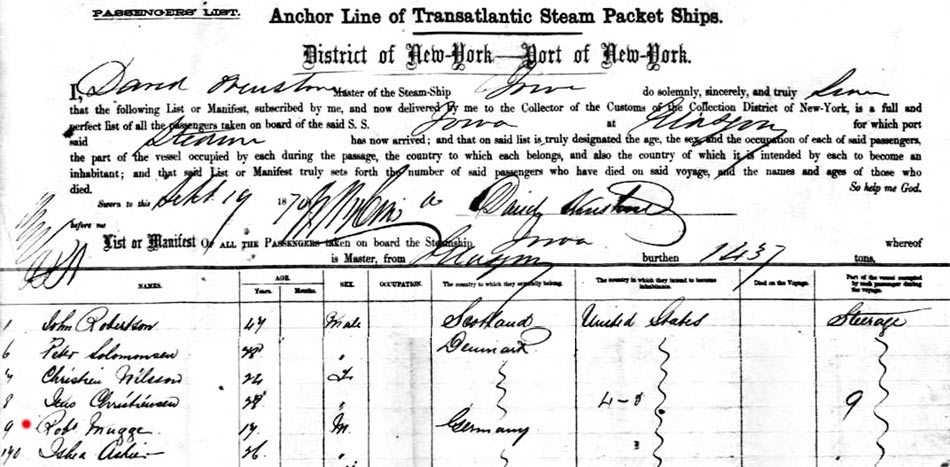 PASSENGERS' LIST.
Anchor Line of Transatlantic Steam Packet Ships.
District of New-York—Port of New-York.
I, David Master of the Steam-Ship Iowa do solemnly, sincerely, and truly
that the following List or Manifest, subscribed by me, and now delivered by me to the Collector of the Customs of the Collection District of New-York, is a full and
perfect list of all the passengers taken on board of the said S. S. Iowa at Glasgow for which port
said has now arrived; and that on said list is truly designated the age, the sex, and the occupation of each of said passengers,
the part of the vessel occupied by each during the passage, the country to which each belongs, and also the country of which it is intended by each to become an
inhabitant; and that said List or Manifest truly sets forth the number of said passengers who have died on said voyage, and the names and ages of those who
died. So help me God.
Sworn to this Sept 19 1870 David
before me
List or Manifest OF ALL THE PASSENGERS taken on board the Steamship Iowa whereof
is Master, from Glasgow burthen 1437 tons,
NAMES. AGE. Years. Months. SEX. OCCUPATION. The country to which they severally belong. The country in which they intend to become inhabitants. Died on the Voyage. Part of the vessel occupied by each passenger during the voyage.
1 John Robertson 47 Male Scotland United States Steerage
6 Peter Solomonsen 28 " Denmark
7 Christien Nilsson 22
8 Jens Christiensen 28 " 4-8 9
9 Robt Mugge 17 M. Germany
26 "